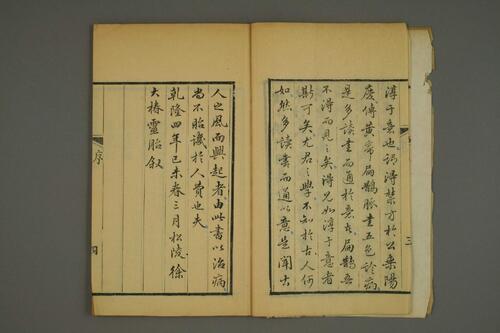 淳于意也訶得禁方於公乗陽
慶傳黄帝扁鵲脉書五色診病
是多讀書而通於意也扁鵲吾
不得而見之矣得見如淳于意者
斯可矣尤君之學不知於古人何
如然多讀書而通以意豈聞古
人之風而興起者由此書以治病
尚不貽譏於人費也夫
乾隆四年己未春三月松陵徐
大椿靈胎叙
序
四
三